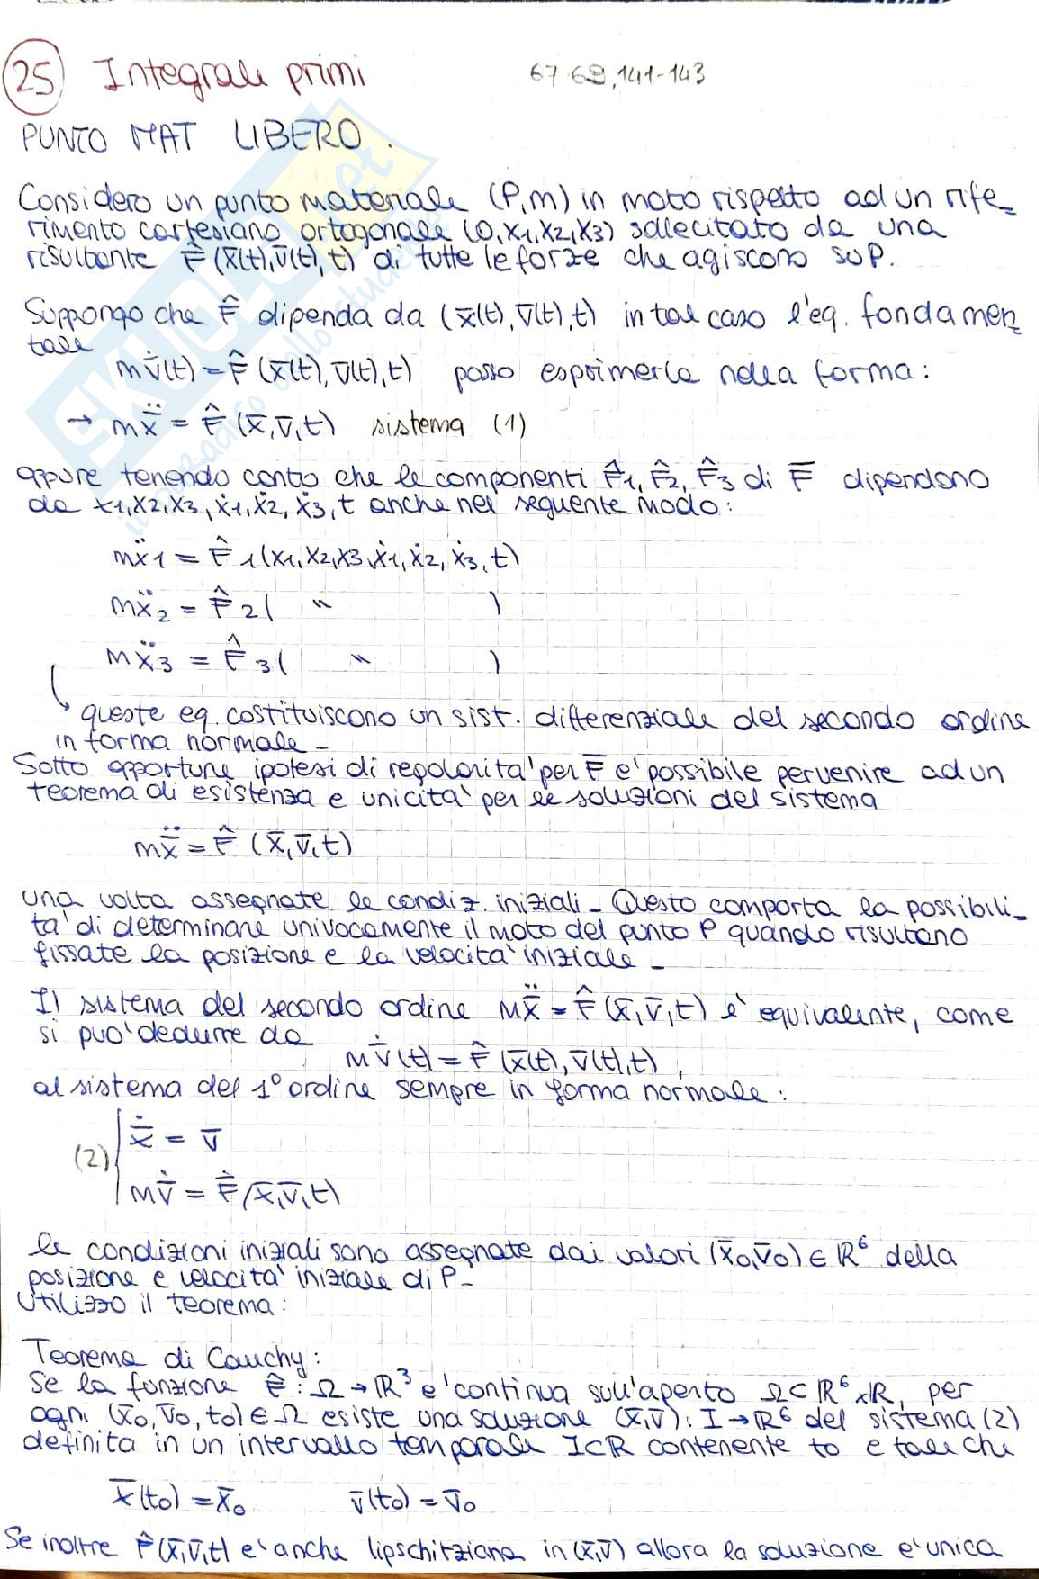 25 Integrali primi 67-68, 141-143
PUNTO MAT LIBERO.
Considero un punto materiale (P,m) in moto rispetto ad un rife=
rimento cartesiano ortogonale (0,x1,x2,x3) sollecitato da una
risultante F̂(x̄(t),v̄(t),t) di tutte le forze che agiscono su P.
Suppongo che F̂ dipenda da (x̄(t),v̄(t),t) in tal caso l'eq. fondamen=
tale
mv̄̇(t) = F̂(x̄(t),v̄(t),t) posso esprimerla nella forma:
→ mẍ̄ = F̂(x̄,v̄,t) sistema (1)
oppure tenendo conto che le componenti F̂1, F̂2, F̂3 di F̄ dipendono
da x1,x2,x3,ẋ1,ẋ2,ẋ3,t anche nel seguente modo:
mẍ1 = F̂1(x1,x2,x3,ẋ1,ẋ2,ẋ3,t)
mẍ2 = F̂2( " )
mẍ3 = F̂3( " )
queste eq. costituiscono un sist. differenziale del secondo ordine
in forma normale-
Sotto opportune ipotesi di regolarita' per F̄ e' possibile pervenire ad un
teorema di esistenza e unicita' per le soluzioni del sistema
mẍ̄ = F̂(x̄,v̄,t)
una volta assegnate le condiz. iniziali- Questo comporta la possibili-
ta' di determinare univocamente il moto del punto P quando risultano
fissate la posizione e la velocita' iniziale-
Il sistema del secondo ordine mẍ̄ = F̂(x̄,v̄,t) e' equivalente, come
si puo' dedurre da
mv̄̇(t) = F̂(x̄(t),v̄(t),t),
al sistema del 1° ordine sempre in forma normale:
(2) { ẋ̄ = v̄
mv̄̇ = F̂(x̄,v̄,t)
le condizioni iniziali sono assegnate dai valori (x̄0,v̄0) ∈ ℝ⁶ della
posizione e velocita' iniziale di P-
Utilizzo il teorema:
Teorema di Cauchy:
Se la funzione F̂: Ω → ℝ³ e' continua sull'aperto Ω⊂ℝ⁶×ℝ, per
ogni (x̄0,v̄0,t0) ∈ Ω esiste una soluzione (x̄,v̄): I→ℝ⁶ del sistema (2)
definita in un intervallo temporale I⊂ℝ contenente t0 e tale che
x̄(t0) = x̄0 v̄(t0) = v̄0
Se inoltre F̂(x̄,v̄,t) e' anche lipschitziana in (x̄,v̄) allora la soluzione e' unica